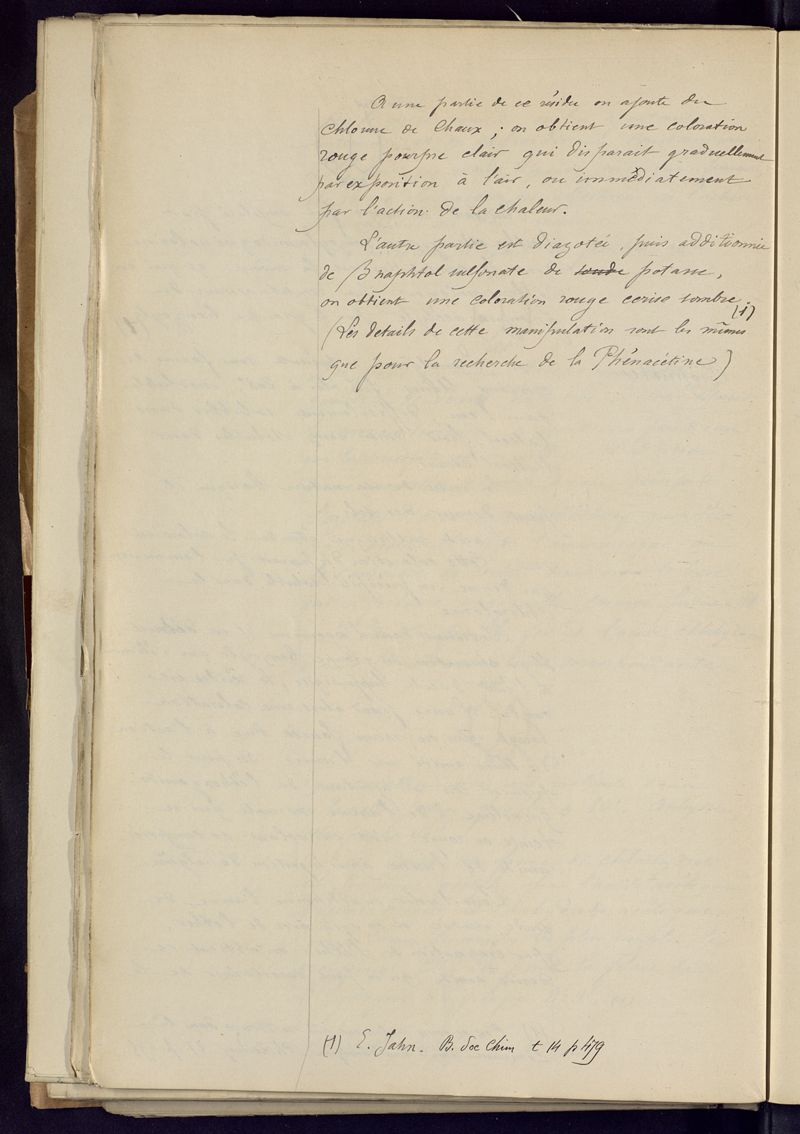 A une partie de ce résidu on ajoute du
chlorure de Chaux ; on obtient une coloration
rouge pourpre clair qui disparait graduellement
par exposition à l'air, ou immédiatement
par l'action de la chaleur.
L'autre partie est diazotée, puis additionnée
de B naphtol sulfonate de soude potasse,
on obtient une coloration rouge cerise sombre. (1)
(Les details de cette manipulation sont les mêmes
que pour la recherche de la Phénacétine)
(1) E. Jahn. B. Soc Chim t 14 p 479